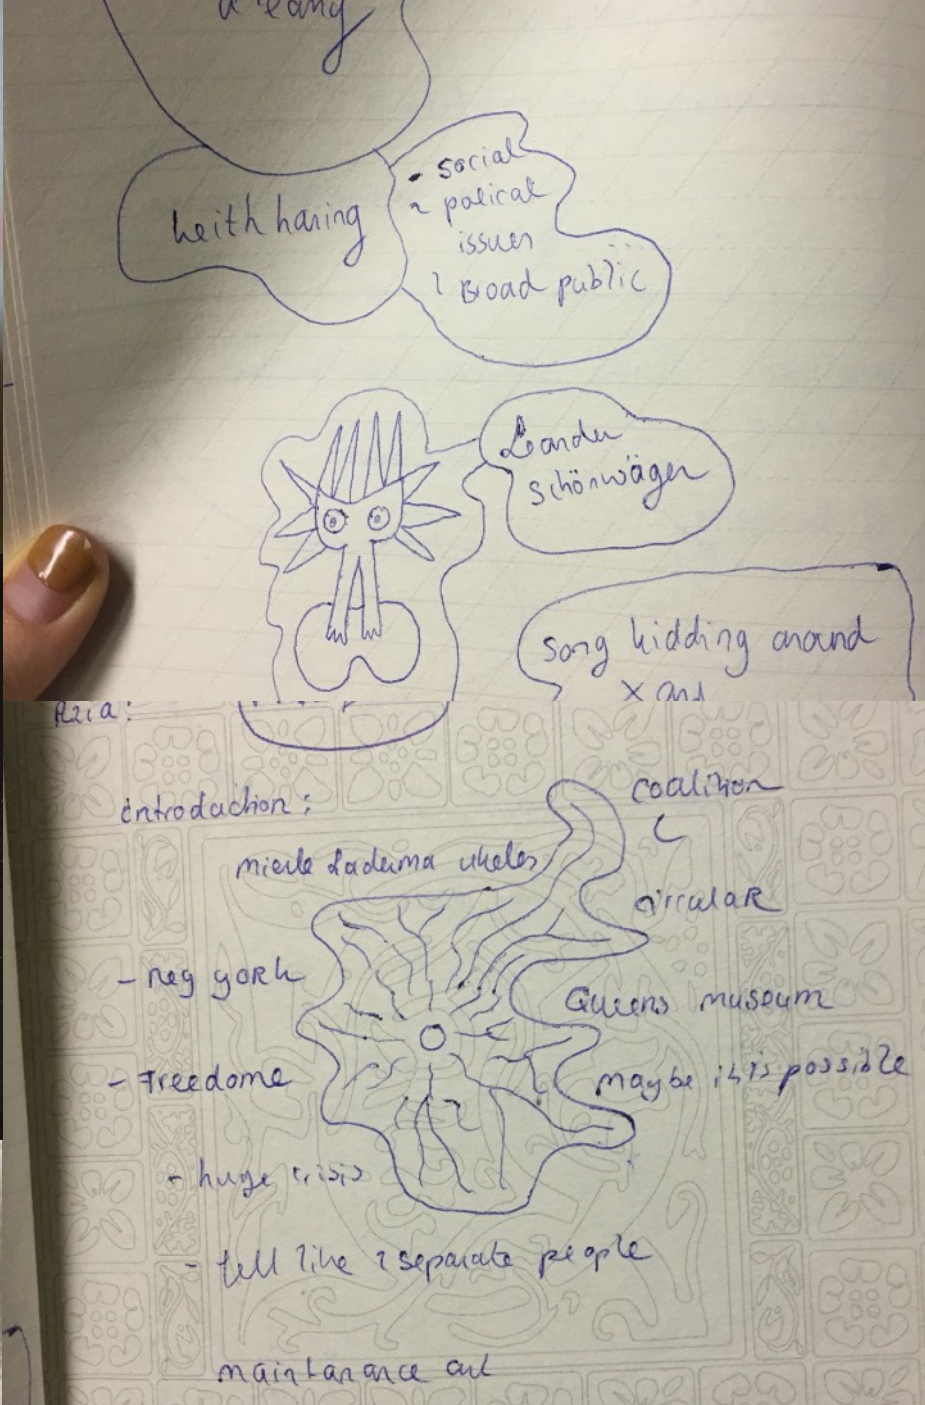 keith haring
- social
~ polical
issues
~ Broad public
Lander
schönwäger
song kidding around
x and
introduction:
coalition
mierle Laderma ukeles
circular
- ney york
Queens museum
- Freedome
maybe it is possible
- huge crisis
- fell like 2 separate people
maintanance art